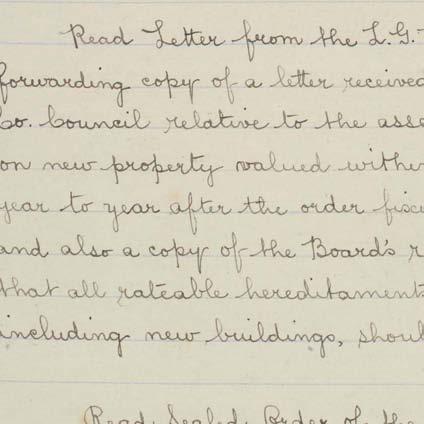 Read Letter from the L.G.
forwarding copy of a letter received
Co. Council relative to the asse
on new property valued
year to year after the order
and also a copy of the Board's r
that all rateable hereditament
including new buildings, shoul
Read Sealed Order of the